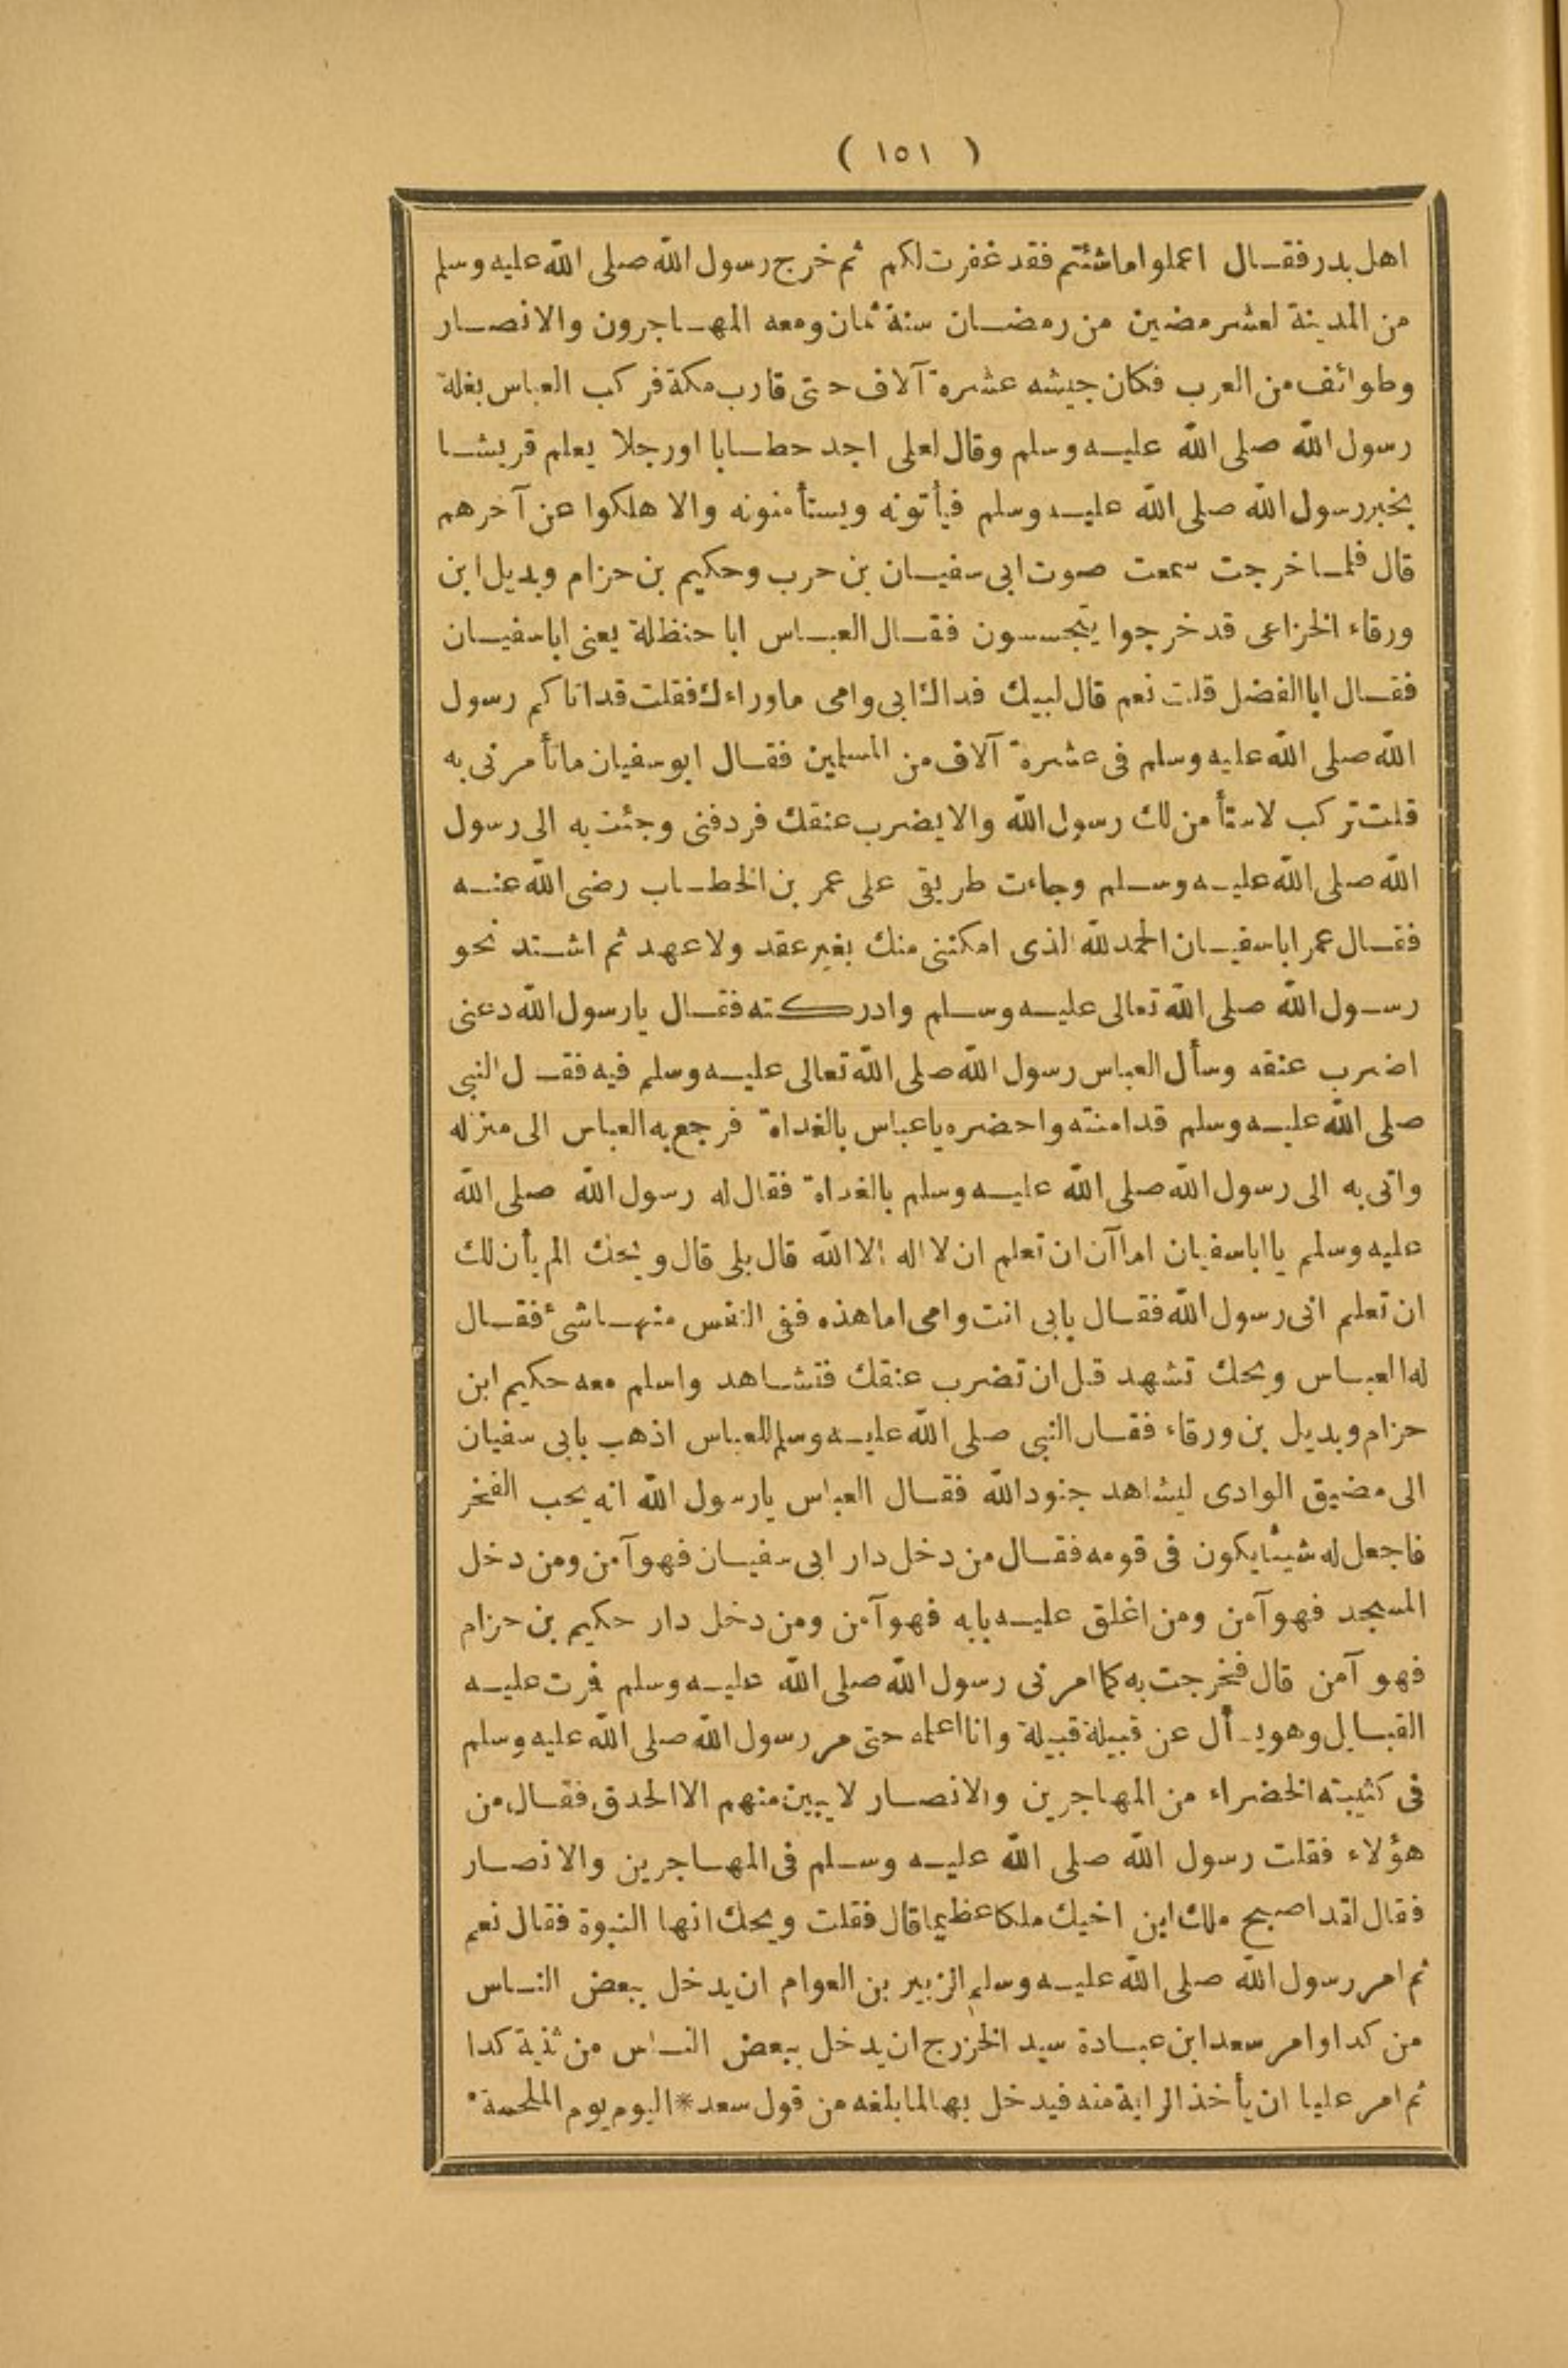 ( ١٥١ )
اهل بدر فقال اعملوا ما شئتم فقد غفرت لكم ثم خرج رسول الله صلى الله عليه وسلم
من المدينة لعشر مضين من رمضان سنة ثمان ومعه المهاجرون والانصار
وطوائف من العرب فكان جيشه عشرة آلاف حتى قارب مكة فركب العباس بغلة
رسول الله صلى الله عليه وسلم وقال لعلى اجد حطابا او رجلا يعلم قريشا
بخبر رسول الله صلى الله عليه وسلم فيأتونه ويستأمنونه والا هلكوا عن آخرهم
قال فلما خرجت سمعت صوت ابى سفيان بن حرب وحكيم بن حزام وبديل ابن
ورقاء الخزاعى قد خرجوا يتجسسون فقال العباس ابا حنظلة يعنى ابا سفيان
فقال ابا الفضل قلت نعم قال لبيك فداك ابى وامى ما وراءك فقلت قد اتاكم رسول
الله صلى الله عليه وسلم فى عشرة آلاف من المسلمين فقال ابو سفيان ما تأمرنى به
قلت تركب لاستأمن لك رسول الله والا يضرب عنقك فردفنى وجئت به الى رسول
الله صلى الله عليه وسلم وجاءت طريقى على عمر بن الخطاب رضى الله عنه
فقال عمر ابا سفيان الحمد لله الذى امكننى منك بغير عقد ولا عهد ثم اشتد نحو
رسول الله صلى الله تعالى عليه وسلم وادركته فقال يا رسول الله دعنى
اضرب عنقه وسأل العباس رسول الله صلى الله تعالى عليه وسلم فيه فقال النبى
صلى الله عليه وسلم قد امنته واحضره يا عباس بالغداة فرجع به العباس الى منزله
واتى به الى رسول الله صلى الله عليه وسلم بالغداة فقال له رسول الله صلى الله
عليه وسلم يا ابا سفيان اما آن ان تعلم ان لا اله الا الله قال بلى قال ويحك الم يأن لك
ان تعلم انى رسول الله فقال بابى انت وامى اما هذه ففى النفس منها شئ فقال
له العباس ويحك تشهد قبل ان تضرب عنقك فتشاهد واسلم معه حكيم ابن
حزام وبديل بن ورقاء فقال النبى صلى الله عليه وسلم للعباس اذهب بابى سفيان
الى مضيق الوادى ليشاهد جنود الله فقال العباس يا رسول الله انه يحب الفخر
فاجعل له شيئا يكون فى قومه فقال من دخل دار ابى سفيان فهو آمن ومن دخل
المسجد فهو آمن ومن اغلق عليه بابه فهو آمن ومن دخل دار حكيم بن حزام
فهو آمن قال فخرجت به كما امرنى رسول الله صلى الله عليه وسلم فمرت عليه
القبائل وهو يسأل عن قبيلة قبيلة وانا اعلمه حتى مر رسول الله صلى الله عليه وسلم
فى كتيبته الخضراء من المهاجرين والانصار لا يبين منهم الا الحدق فقال من
هؤلاء فقلت رسول الله صلى الله عليه وسلم فى المهاجرين والانصار
فقال لقد اصبح ملك ابن اخيك ملكا عظيما قال فقلت ويحك انها النبوة فقال نعم
ثم امر رسول الله صلى الله عليه وسلم الزبير بن العوام ان يدخل ببعض الناس
من كدا وامر سعد ابن عبادة سيد الخزرج ان يدخل ببعض الناس من ثنية كدا
ثم امر عليا ان يأخذ الراية منه فيدخل بها لما بلغه من قول سعد * اليوم يوم الملحمة *